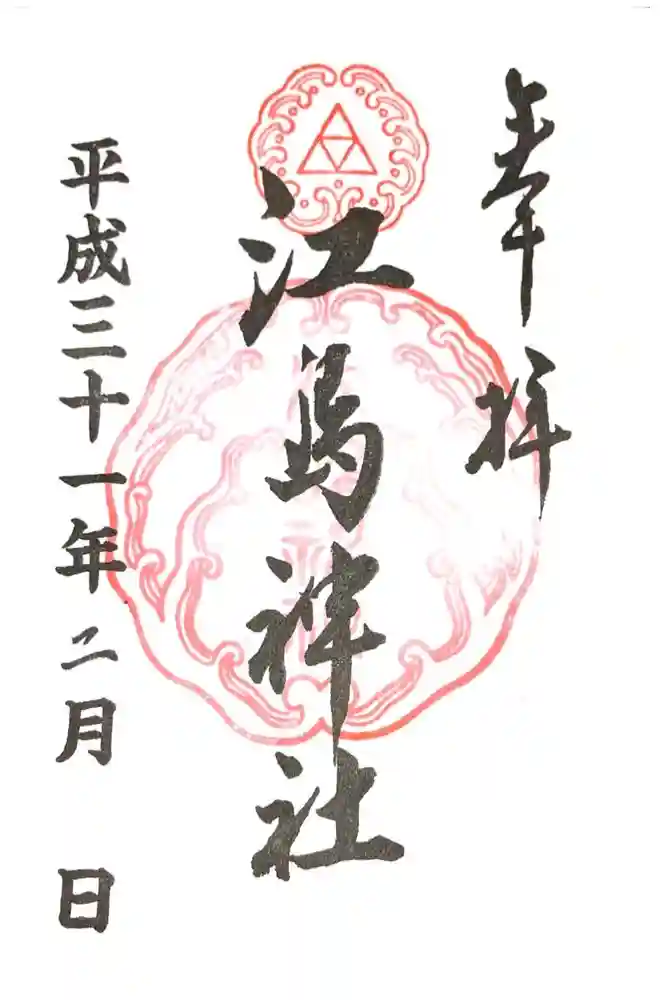 奉拝
江島神社
平成三十一年二月 日